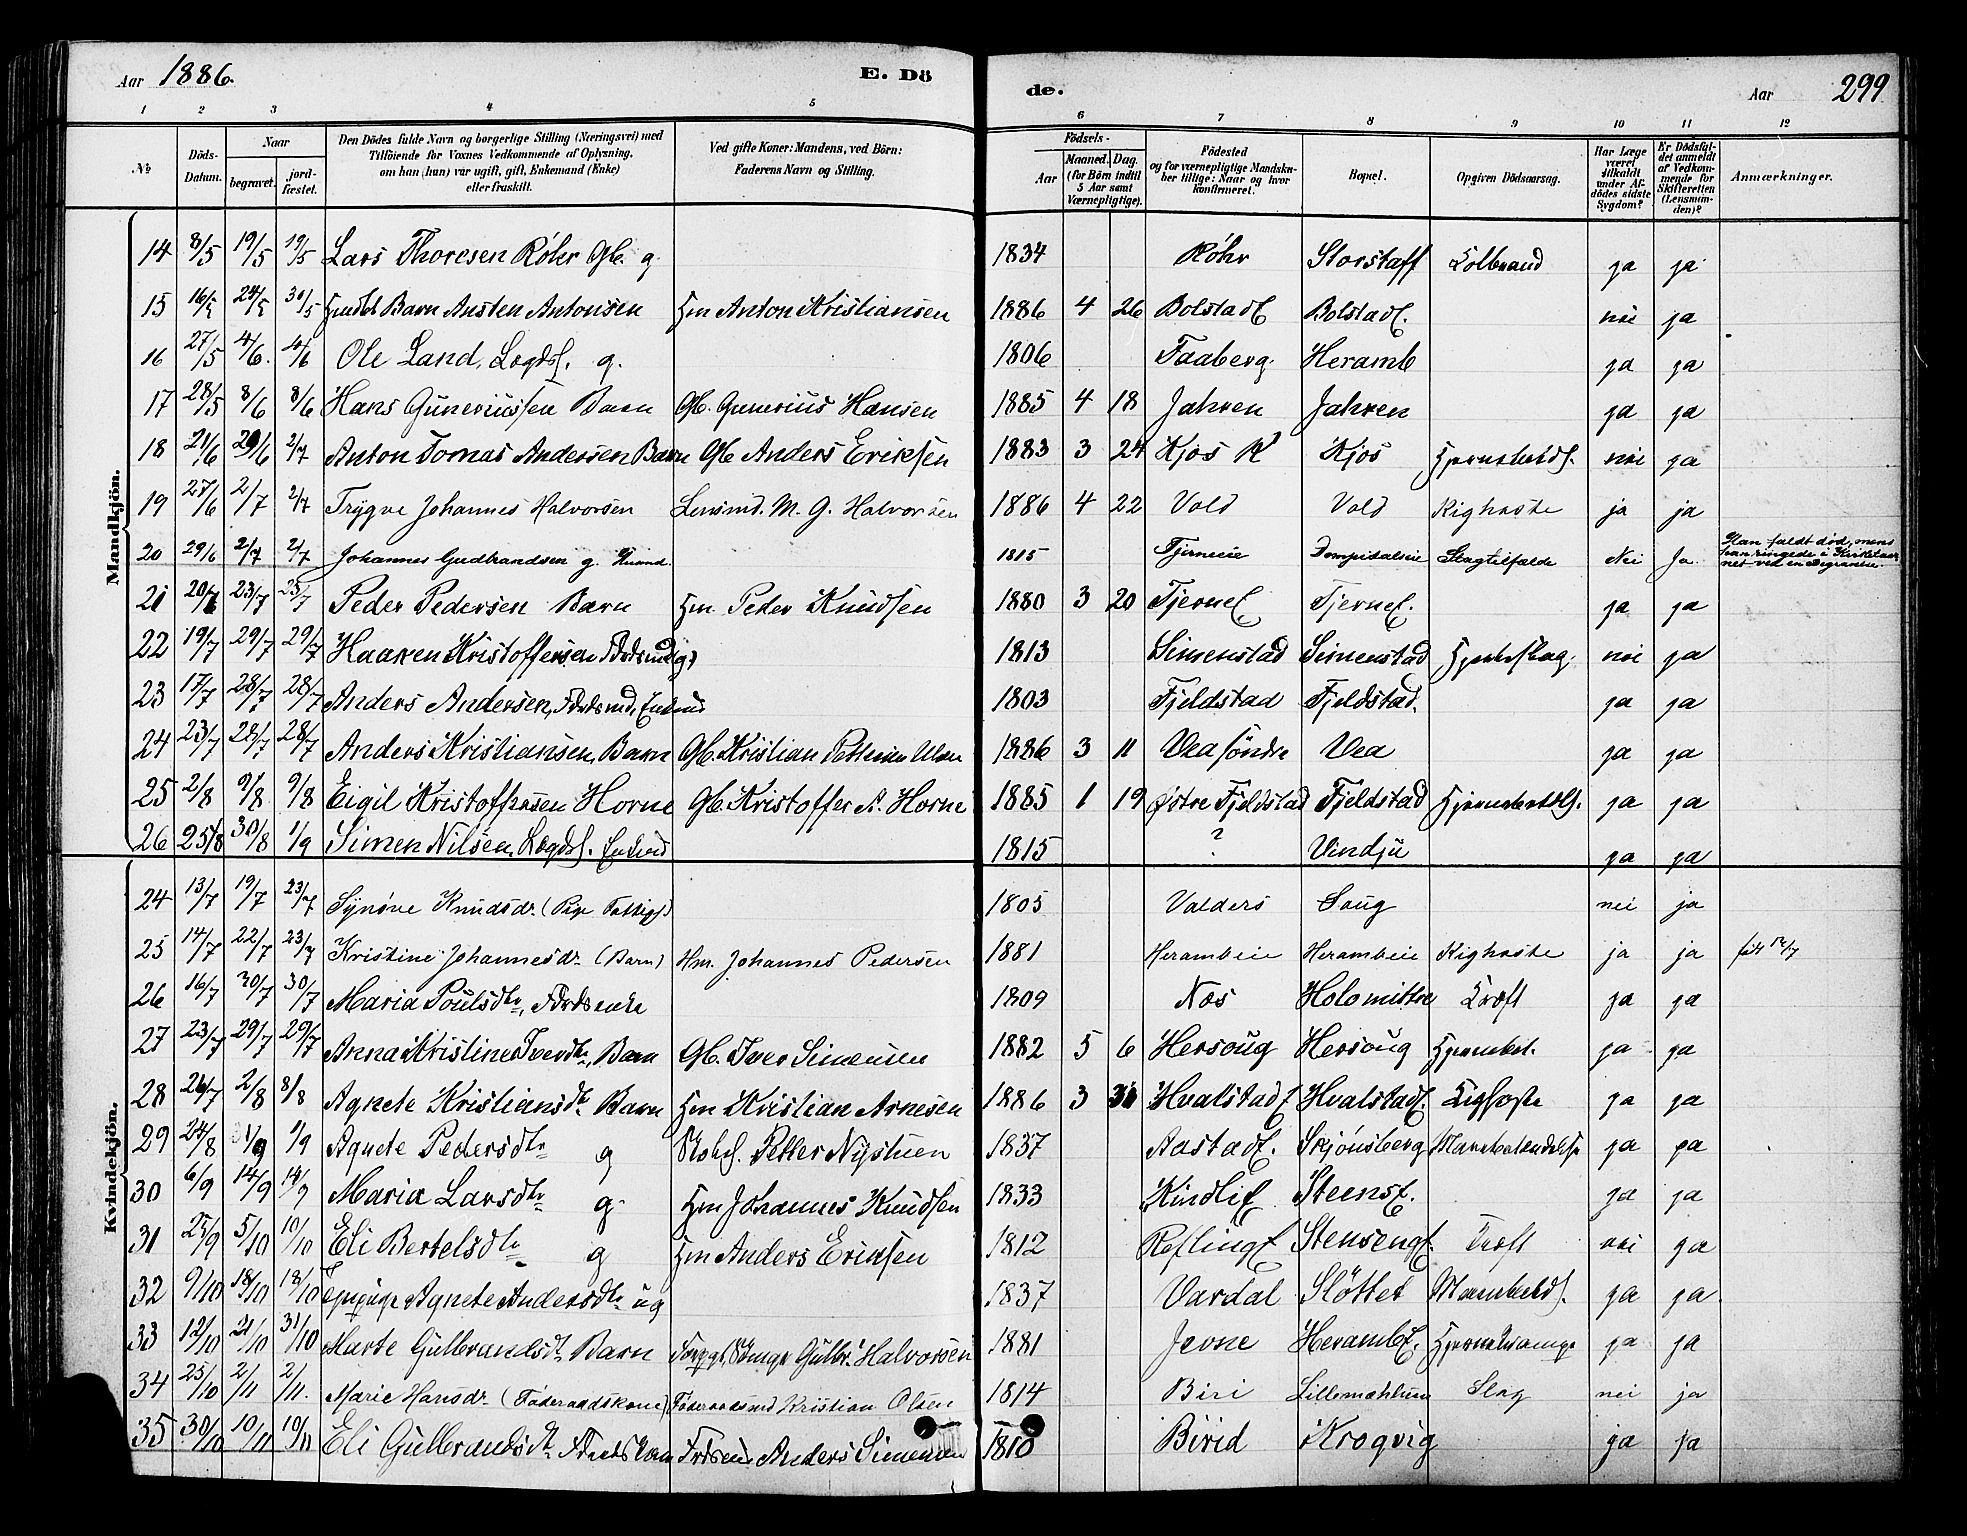 Aar 1886. E. Dö de. Aar 299
1 2 3 4 5 6 7 8 9 10 11 12
No. Döds-Datum. Naar begravet. jord-fæstet. Den Dödes fulde Navn og borgerlige Stilling (Næringsvei) med Tilföiende for Voxnes Vedkommende af Oplysning, om han (hun) var ugift, gift, Enkemand (Enke) eller fraskilt. Ved gifte Koner: Mandens, ved Börn: Faderens Navn og Stilling. Födsels- Aar Maaned. Dag. (for Börn indtil 5 Aar samt Værnepligtige). Födested og for værnepligtige Mandskaber tillige: Naar og hvor konfirmeret. Bopæl. Opgiven Dödsaarsag. Har Læge været tilkaldt under Afdödes sidste Sygdom? Er Dödsfaldet anmeldt af Vedkommende for Skifteretten (Lensmanden)? Anmærkninger.
Mandkjön.
14 8/5 19/5 19/5 Lars Thoresen Röhr Gb. g. 1834 Röhr Storstaff Kolbrand ja ja
15 16/5 24/5 30/5 Barn Austen Antonsen Hm Anton Kristiansen 1886 4 26 Bolstadℓ Bolstadℓ. nei ja
16 27/5 4/6. 4/6 Ole Land, Lægdsl. g. 1806 Faaberg. Heramb ja ja
17 28/5 8/6 8/6 Hans Guneriussen Barn Gb. Gunerius Hansen 1885 4 18 Jahren Jahren ja ja
18 21/6 29/6 2/7 Anton Tomas Andersen Barn Gb Anders Eriksen 1883 3 24 Kjos Kjos Hjernebetds. nei ja
19 27/6 2/7 2/7 Trygve Johannes Halvorsen Lensmd. M. G. Halvorsen 1886 4 22 Vold Vold Kighoste ja ja
20 29/6 2/7 2/7 Johannes Gudbrandsen g. 1815 Tjerneie Slagtilfælde Nei Ja Han faldt död, mens
21 20/7 23/7 23/7 Peder Pedersen Barn Hm. Peder Knudsen 1880 3 20 Tjerneℓ Tjerneℓ. ja ja
22 19/7 29/7 29/7 Haaken Kristoffersen Fdrdsmd g) 1813 Simenstad Simenstad Hjerteslag. nei ja
23 17/7 28/7 28/7 Anders Andersen, Fdrdsmd, Enkmd 1803 Fjeldstad Fjeldstad. ja ja
24 23/7 28/7 28/7 Anders Kristiansen, Barn Gb. Kristian 1886 3 11 Vea söndre Vea ja ja
25 2/8 9/8 9/8 Eigil Kristoffersen Horne Gb. Kristoffer A. Horne 1885 1 19 Östre Fjeldstad Fjeldstad Hjernebetdls. ja ja
26 25/8 30/8 1/9 Simen Nilsen, Lægdsl. Enkmd 1815 ? Vindju ja ja
Kvindekjön.
24 13/7 19/7 23/7 Synöve Knudsdr. (Pige Fattigl.) 1805 Valders Saug nei ja
25 14/7 22/7 23/7 Kristine Johannesdr. (Barn) Hm. Johannes Pedersen 1881 Herambeie Herambeie Kighoste ja ja född 12/7
26 16/7 30/7 30/7 Maria Poulsdtr, Fdrdsenke 1809 Næs Holomittre Kræft ja ja
27 23/7 29/7 29/7 Anna Kristine Iversdtr, Barn Gb. Iver Simensen 1882 5 6 Hersoug Hersoug Hjernebet. ja ja
28 26/7 2/8 8/8 Agnete Kristiansdtr Barn Hm Kristian Arnesen 1886 3 Hvalstadℓ Hvalstadℓ. Kighoste ja ja
29 24/8 1/9 1/9 Agnete Pedersdtr g Petter Nystuen 1837 Aastadℓ. Skjönsberg ja ja
30 6/9 14/9 14/9 Maria Larsdtr g. Hm Johannes Knudsen 1833 Kindliℓ Steensℓ. ja ja
31 25/9 5/10 10/10 Eli Bertelsdtr g Hm Anders Eriksen 1812 Reflingℓ Stensengℓ. Kræft nei ja
32 9/10 18/10 18/10 Agnete Andersdtr ug 1837 Vardal Slöttet Mavebetds. ja ja
33 12/10 21/10 31/10 Marte Gulbrandsdtr Barn Gulbr. Halvorsen 1881 Jevne Herambℓ. Hjernekrampe ja ja
34 25/10 2/11 2/11. Marie Hansdr. (Föderaadskone) Föderaadsmd Kristian Olsen 1814 Biri Lillemæhlum Slag nei ja
35 30/10 10/11 10/11 Eli Gulbrandsdtr Anders Simensen 1810 Birid Krogvig ja ja